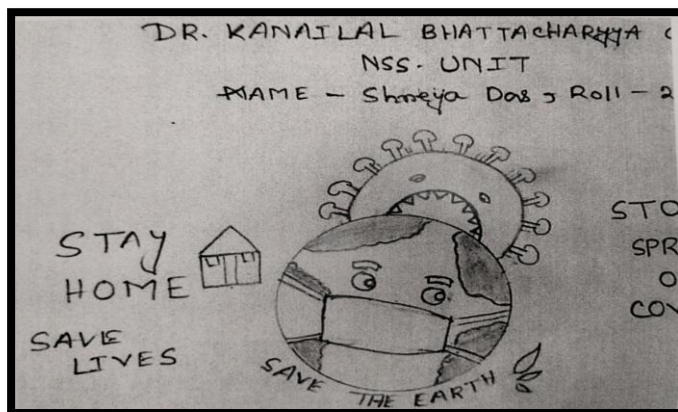 DR. KANAILAL BHATTACHARYYA C
NSS. UNIT
NAME - Shreya Das, Roll - 2
STAY
HOME
SAVE
LIVES
STO
SPR
O
COV
SAVE THE EARTH